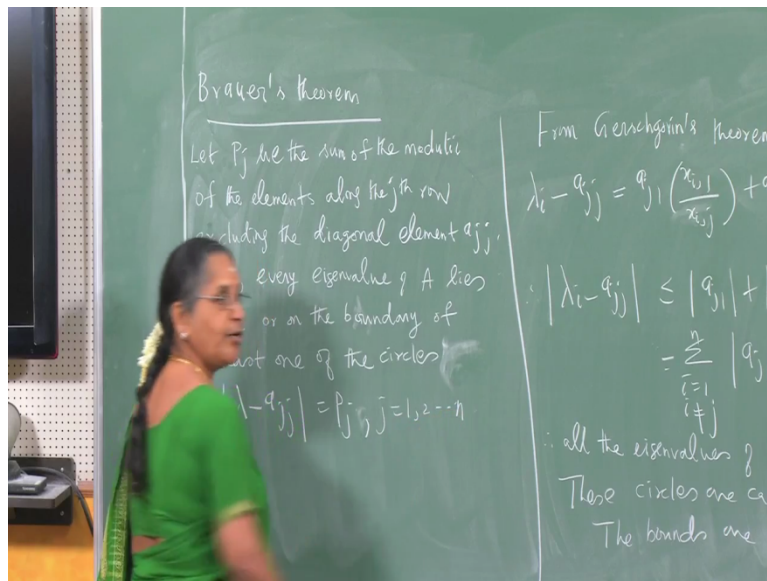 Brauer's theorem
Let Pj be the sum of the moduli
of the elements along the jth row
excluding the diagonal element ajj.
every eigenvalue of A lies
or on the boundary of
one of the circles
|λ-ajj| = Pj, j=1,2---n
From Gerschgorin's theorem
λi - ajj = aj1 (xi,1/xi,j) +
∴ |λi - ajj| ≤ |aj1| +
= Σ(i=1, i≠j)^n |aj
∴ all the eigenvalues of
These circles are ca
The bounds are